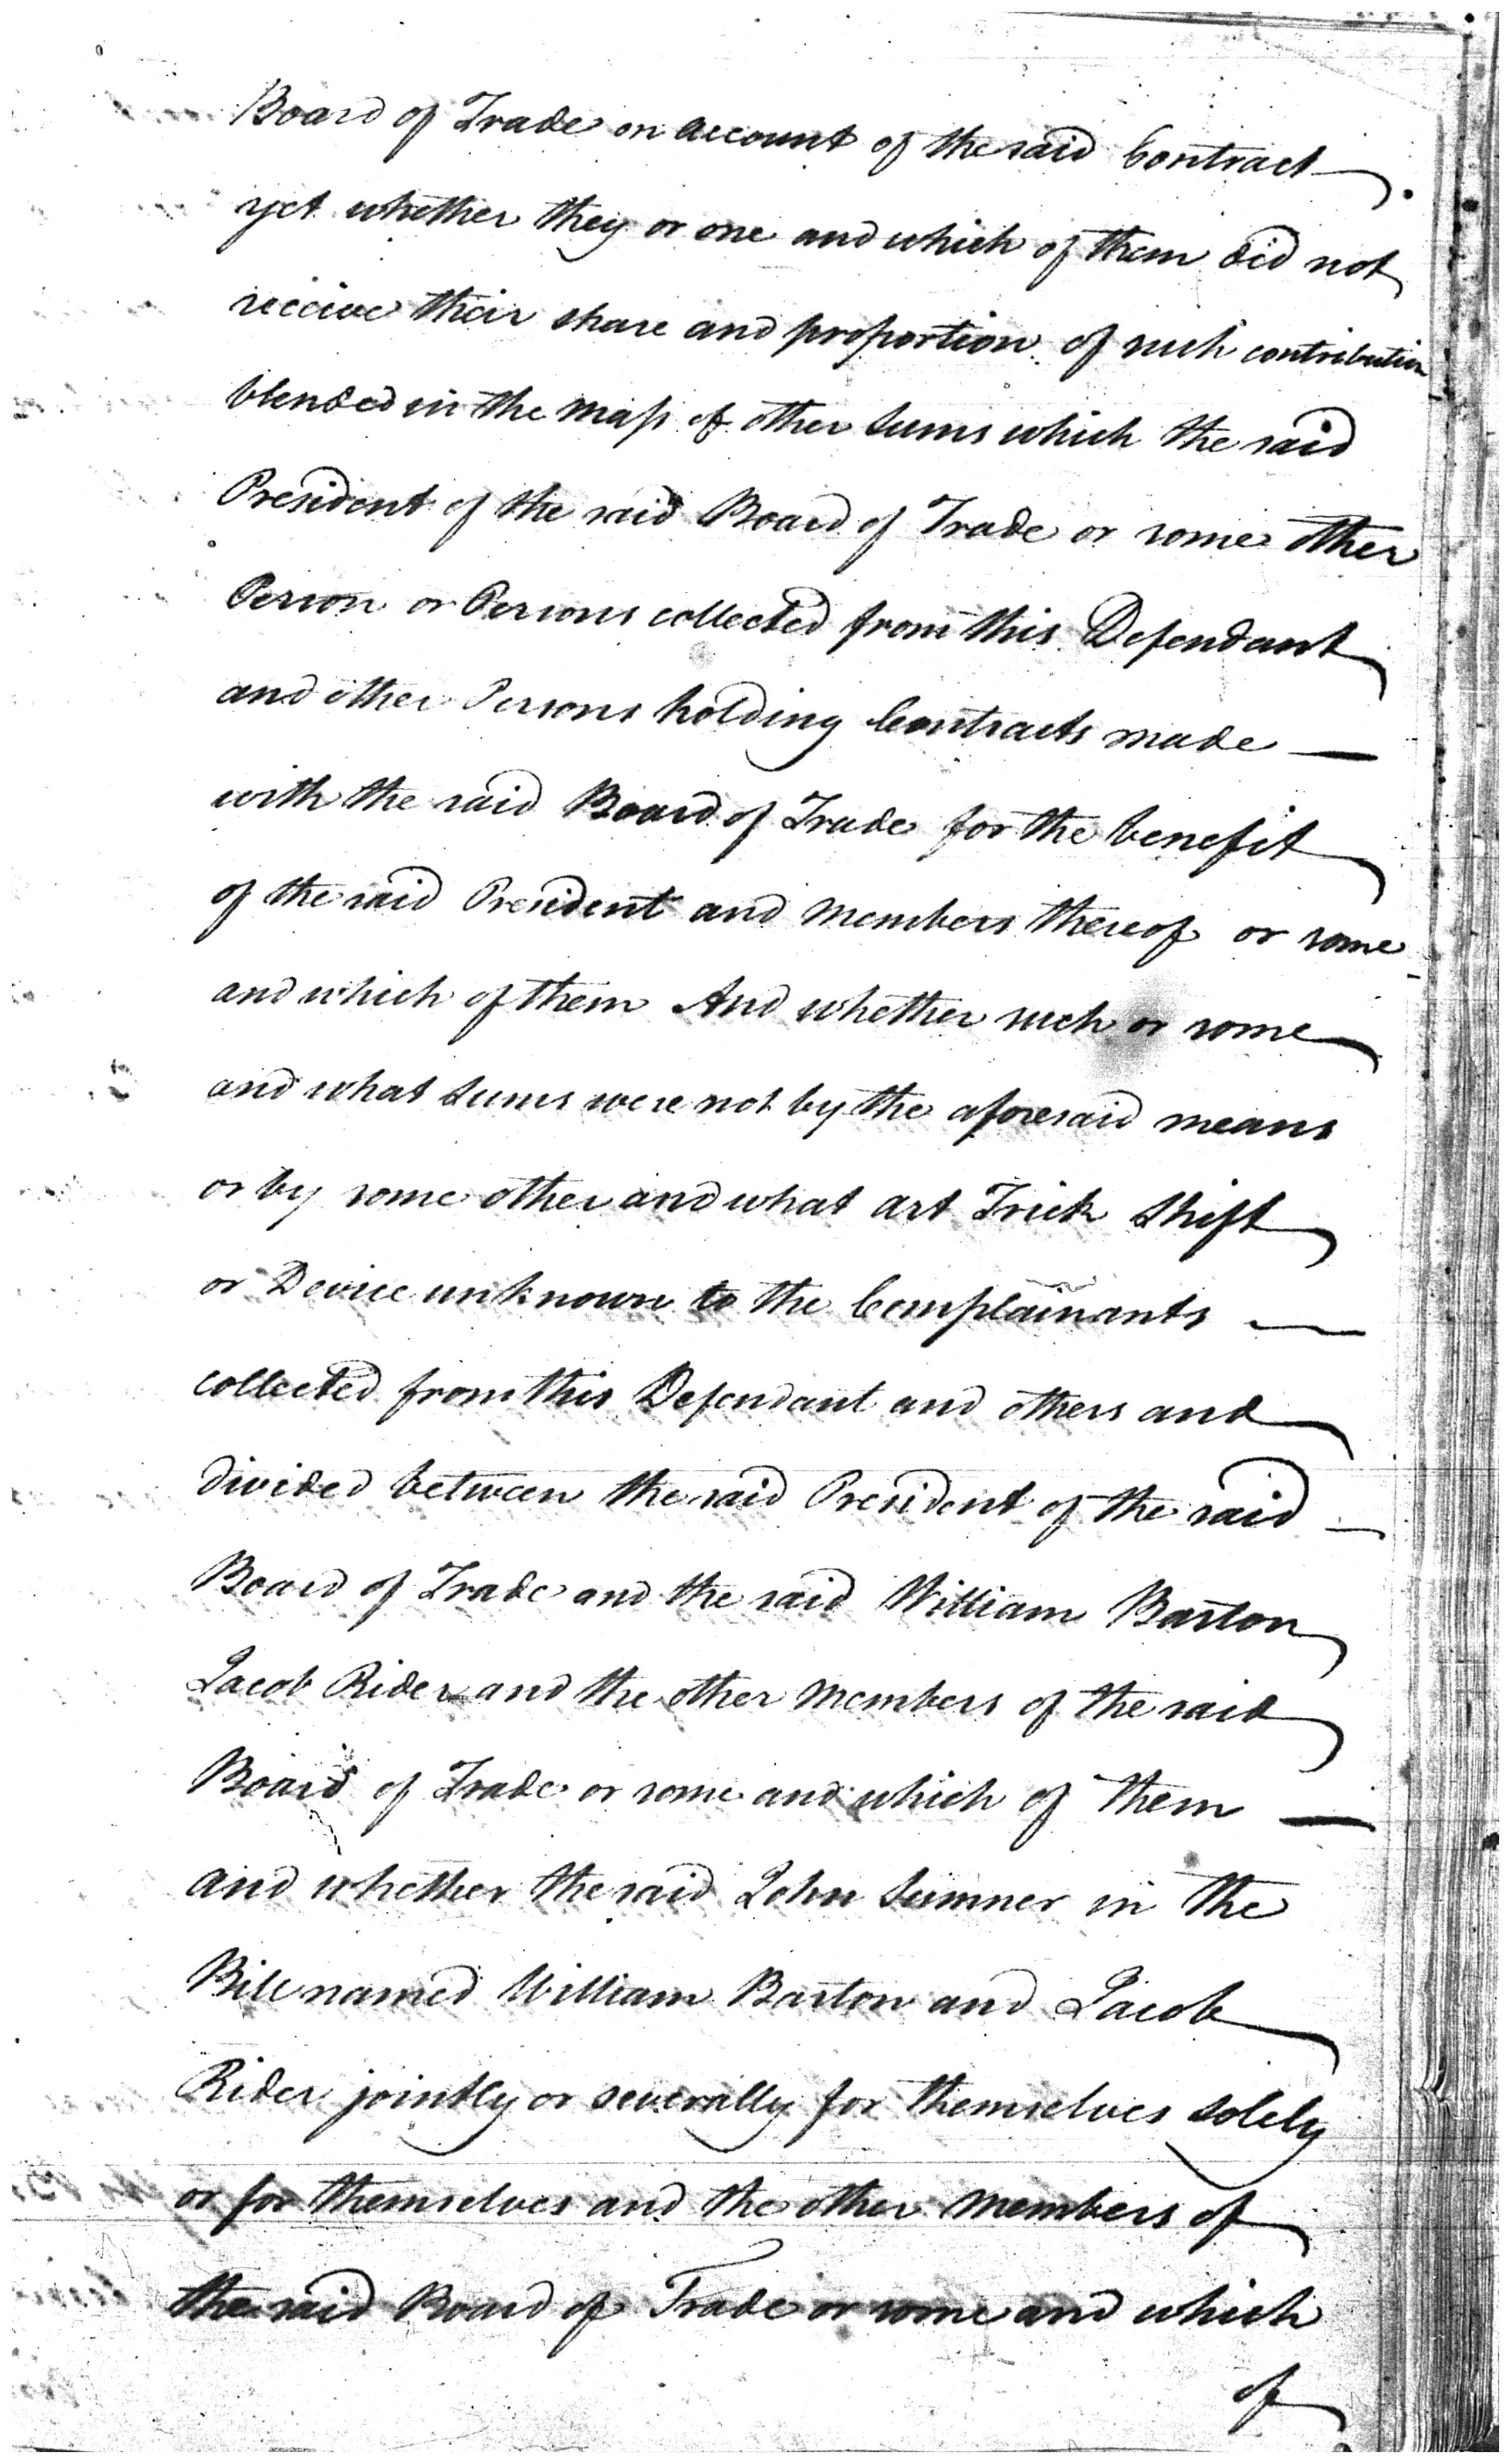 Board of Trade on account of the said Contract
yet whether they or one and which of them did not
receive their share and proportion of such contribution
blended in the Mass of other Sums which the said
President of the said Board of Trade or some other
Person or Persons collected from this Defendant
and other Persons holding Contracts made —
with the said Board of Trade for the benefit
of the said President and Members thereof or some
and which of them And whether such or some
and what Sums were not by the aforesaid means
or by some other and what art Trick Shift
or Device unknown to the Complainants —
collected from this Defendant and others and
divided between the said President of the said —
Board of Trade and the said William Barton
Jacob Rider and the other Members of the said
Board of Trade or some and which of them —
and whether the said John Sumner in the
Bill named William Barton and Jacob
Rider jointly or severally for themselves solely
or for themselves and the other Members of
the said Board of Trade or some and which
of